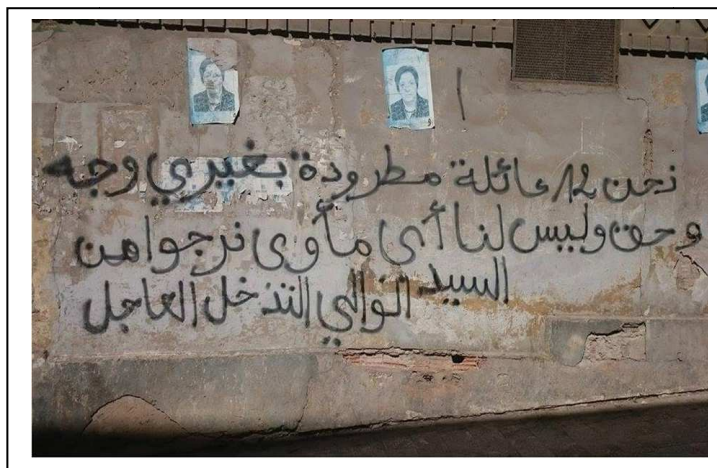 نحن 12 عائلة مطرودة بغيري وجه
وحق وليس لنا أى مأوى نرجوا من
السيد الوالي التدخل العاجل